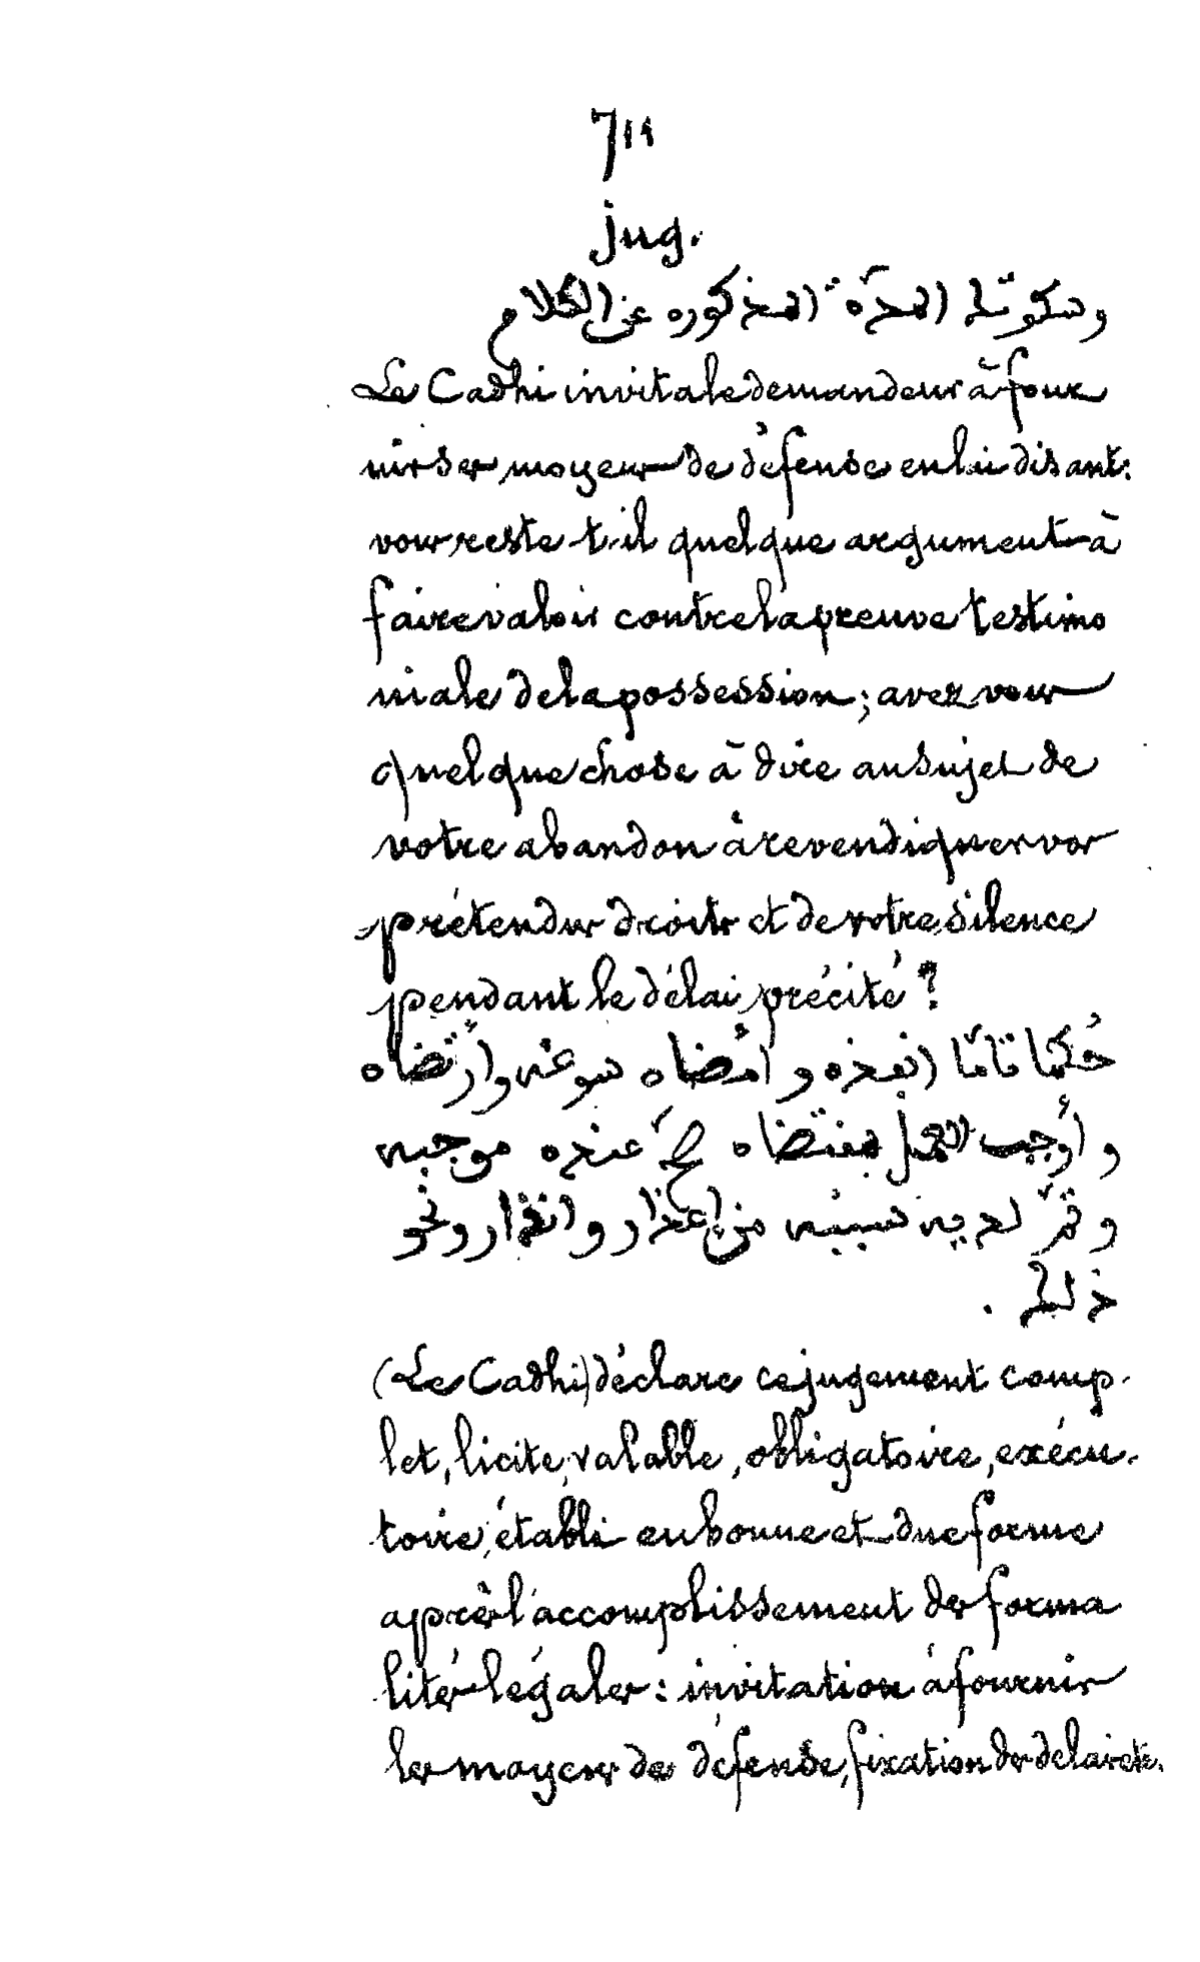 711
jug.
وسكوتك المدّة المذكوره عن الكلام
Le Cadhi invita le demandeur à four
nir ses moyens de défense en lui disant:
vous reste-t-il quelque argument à
faire valoir contre la preuve testimo
niale de la possession; avez vous
quelque chose à dire au sujet de
votre abandon à revendiquer vos
prétendus droits et de votre silence
pendant le délai précité?
حُكما تامّا انفذه وأمضاه سوغه وارتضاه
وأوجب العمل بمقتضاه لمّا عنده موجبه
وتمّ لديه سببه من إعذار وانذار ونحو
ذلك .
(Le Cadhi) déclare ce jugement comp-
let, licite, valable, obligatoire, exécu-
toire, établi en bonne et due forme
après l'accomplissement des forma
lités légales: invitation à fournir
les moyens de défense, fixation des délais etc.